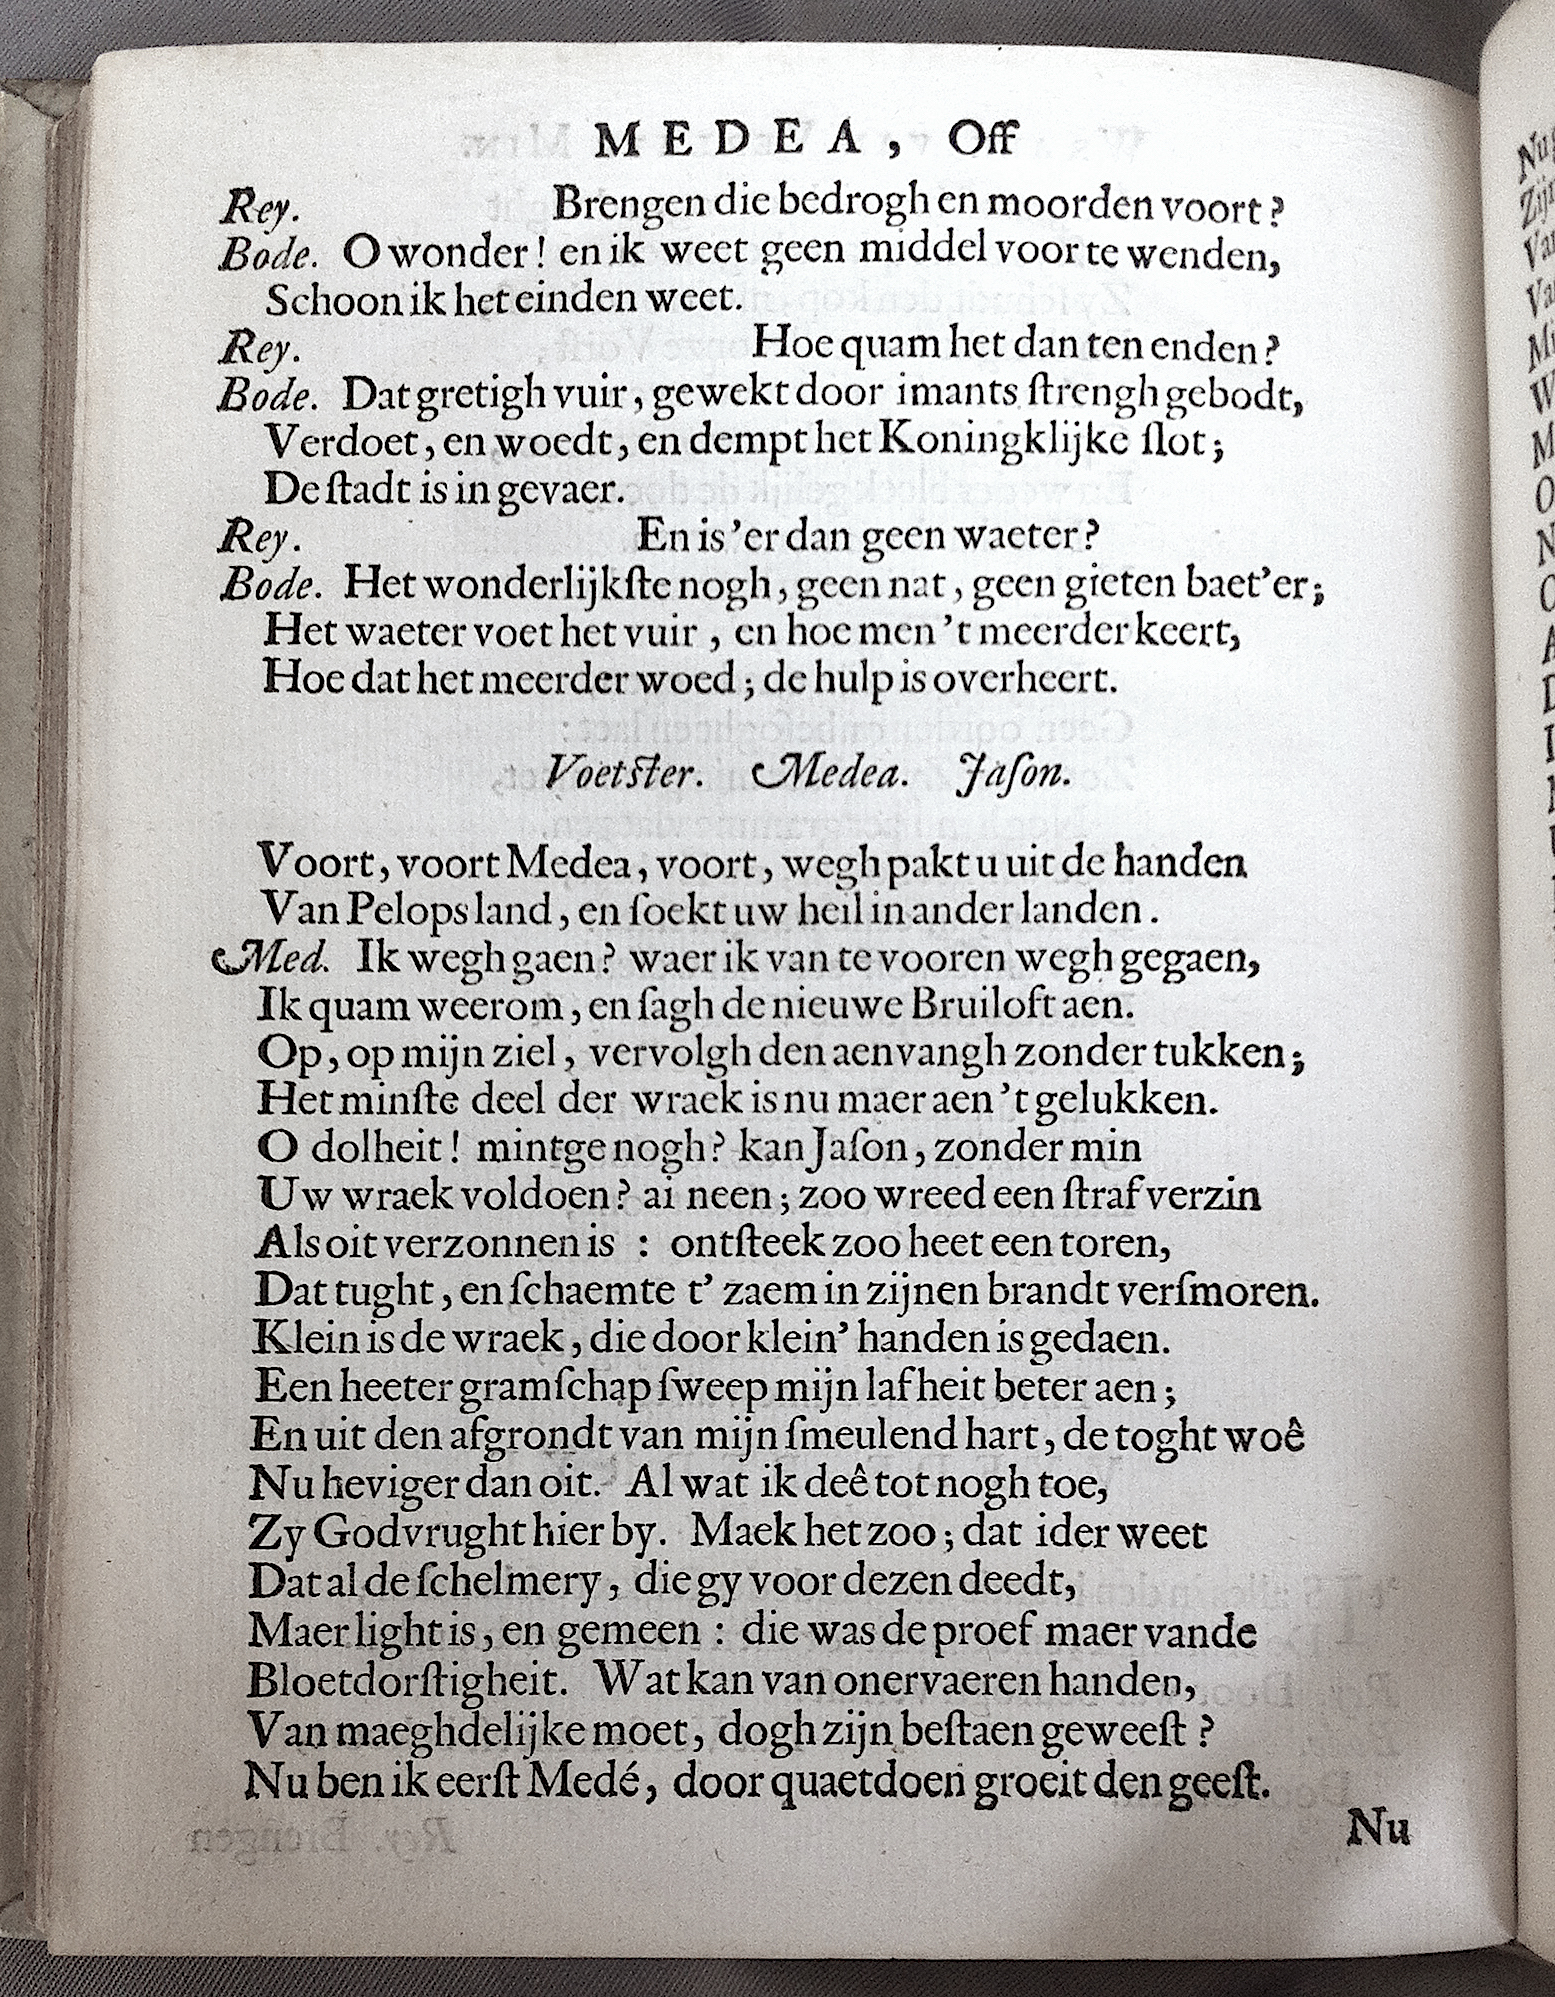 MEDEA, Off
Rey. Brengen die bedrogh en moorden voort?
Bode. O wonder! en ik weet geen middel voor te wenden,
Schoon ik het einden weet.
Rey. Hoe quam het dan ten enden?
Bode. Dat gretigh vuir, gewekt door imants ſtrengh gebodt,
Verdoet, en woedt, en dempt het Koningklijke ſlot;
De ſtadt is in gevaer.
Rey. En is 'er dan geen waeter?
Bode. Het wonderlijkſte nogh, geen nat, geen gieten baet'er;
Het waeter voet het vuir, en hoe men 't meerder keert,
Hoe dat het meerder woed; de hulp is overheert.
Voetſter. Medea. Jaſon.
Voort, voort Medea, voort, wegh pakt u uit de handen
Van Pelops land, en ſoekt uw heil in ander landen.
Med. Ik wegh gaen? waer ik van te vooren wegh gegaen,
Ik quam weerom, en ſagh de nieuwe Bruiloft aen.
Op, op mijn ziel, vervolgh den aenvangh zonder tukken;
Het minſte deel der wraek is nu maer aen 't gelukken.
O dolheit! mintge nogh? kan Jaſon, zonder min
Uw wraek voldoen? ai neen; zoo wreed een ſtraf verzin
Als oit verzonnen is : ontſteek zoo heet een toren,
Dat tught, en ſchaemte t' zaem in zijnen brandt verſmoren.
Klein is de wraek, die door klein' handen is gedaen.
Een heeter gramſchap ſweep mijn lafheit beter aen;
En uit den afgrondt van mijn ſmeulend hart, de toght woê
Nu heviger dan oit. Al wat ik deê tot nogh toe,
Zy Godvrught hier by. Maek het zoo; dat ider weet
Dat al de ſchelmery, die gy voor dezen deedt,
Maer light is, en gemeen : die was de proef maer vande
Bloetdorſtigheit. Wat kan van onervaeren handen,
Van maeghdelijke moet, dogh zijn beſtaen geweeſt?
Nu ben ik eerſt Medé, door quaetdoen groeit den geeſt.
Nu